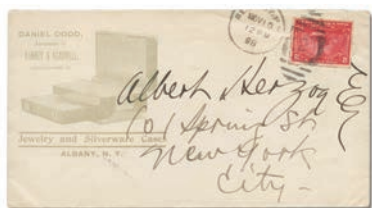 DANIEL DODD,
Jewelry and Silverware Cases
ALBANY, N. Y.
NOV 10
12 PM
98
Albert Herzog Esq
601 Spring St
New York
City